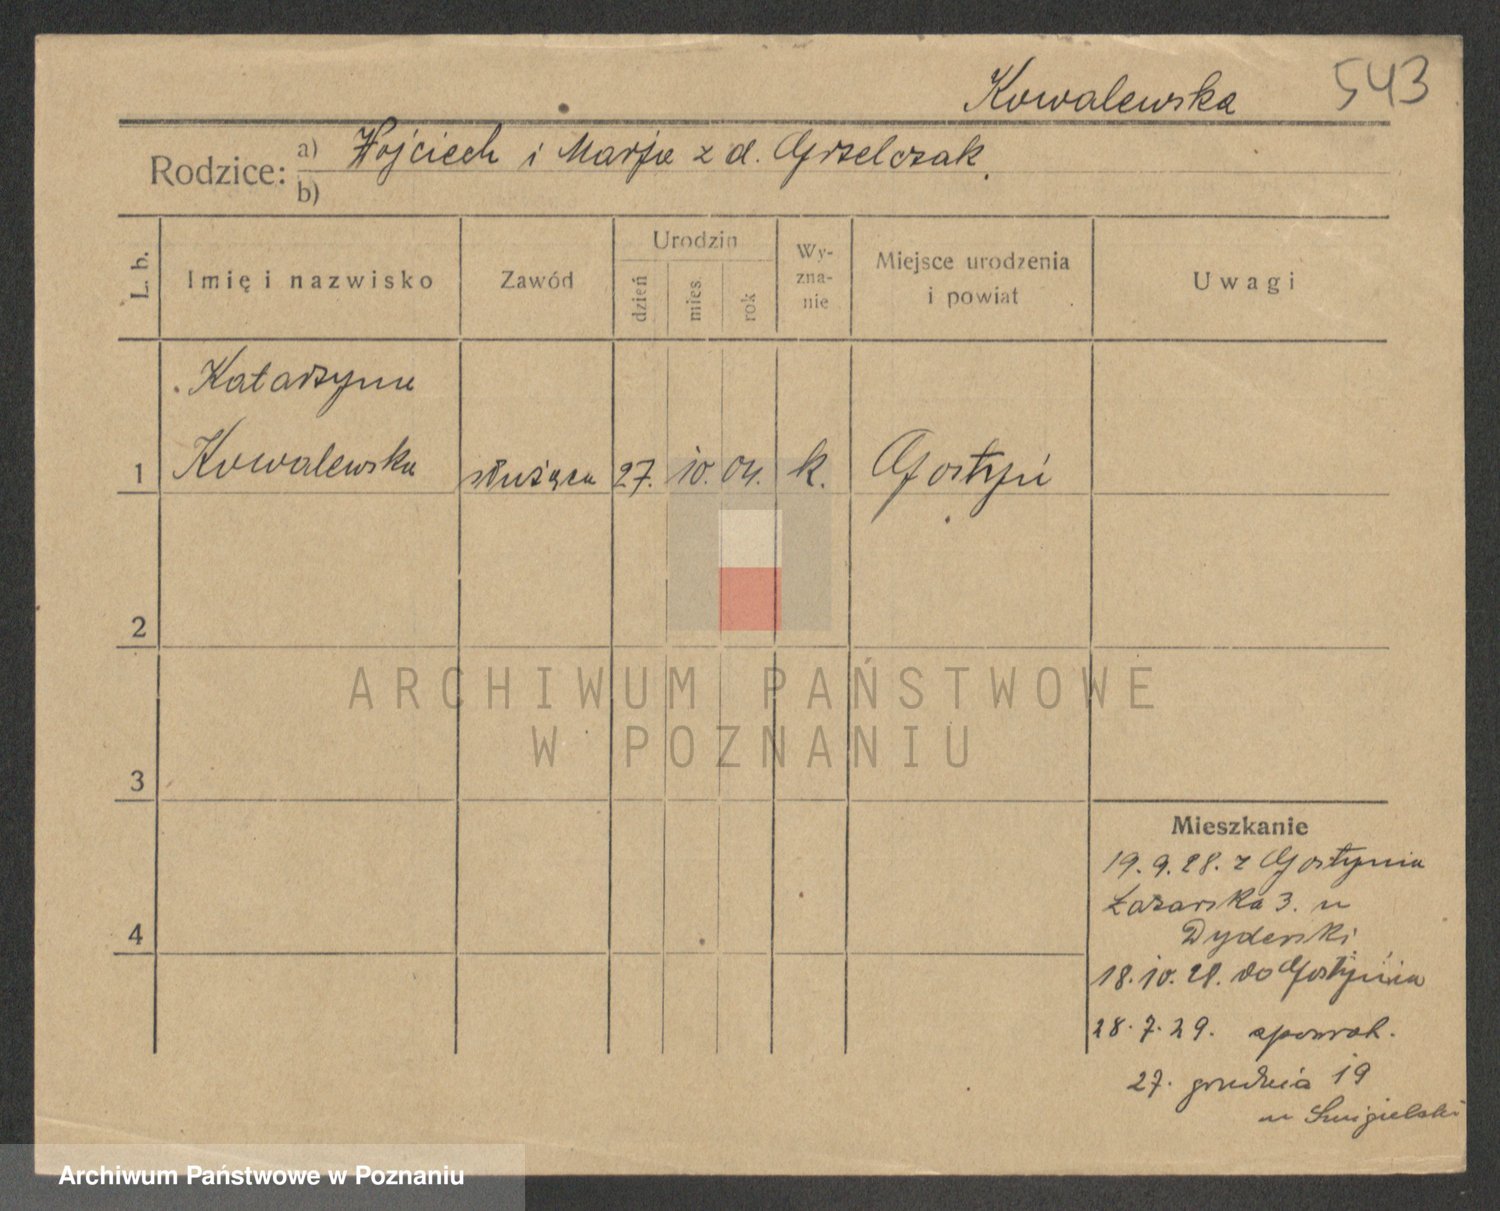 Kowalewska 543
Rodzice: a) Wojciech i Marja z d. Grzelczak.
b)
L. b. Imię i nazwisko Zawód Urodzin dzień mies. rok Wy-zna-nie Miejsce urodzenia i powiat Uwagi
Katarzyna
1 Kowalewska służąca 27. 10. 04. k. Gostyń
2
ARCHIWUM PAŃSTWOWE
W POZNANIU
3
Mieszkanie
19. 9. 28. z Gostynia
Łazarska 3. u
4 Dyderski
18. 10. 28. do Gostynia
28. 7. 29. zpowrot.
27. grudnia 19
u Smigielski
Archiwum Państwowe w Poznaniu